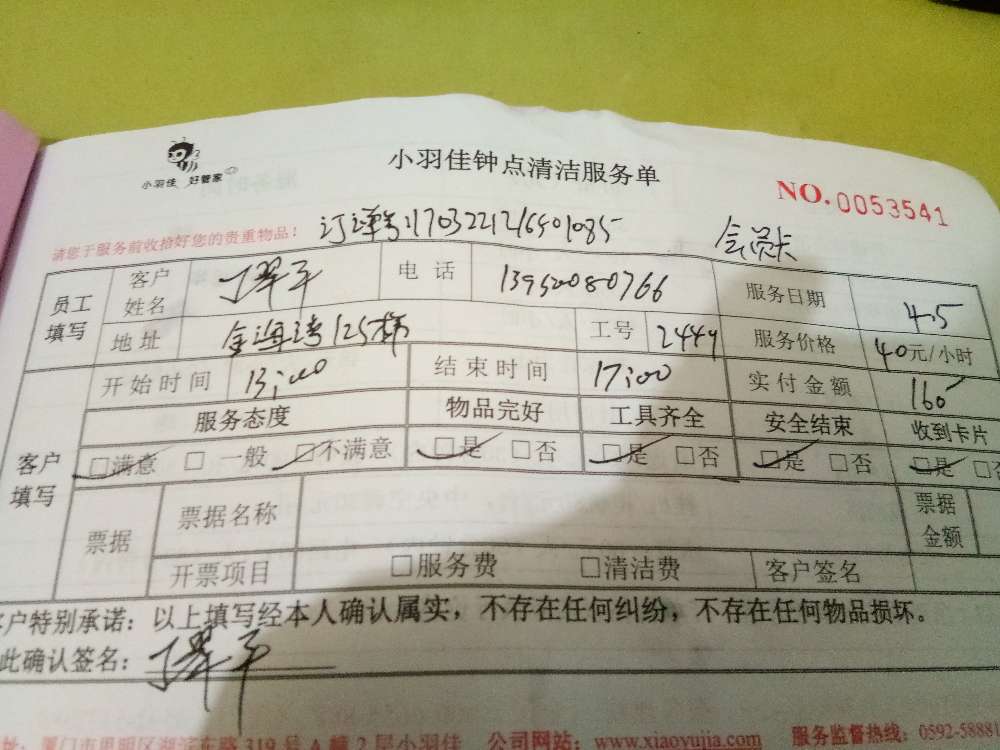 小羽佳 好管家
小羽佳钟点清洁服务单
NO.0053541
请您于服务前收拾好您的贵重物品！ 订单号:1703221216401085 会员卡
员工填写 客户姓名 丁翠平 电话 13952080766 服务日期 4.5
地址 金海湾125栋 工号 2449 服务价格 40元/小时
开始时间 13:00 结束时间 17:00 实付金额 160
客户填写 服务态度 物品完好 工具齐全 安全结束 收到卡片
□满意 □一般 □不满意 □是 □否 □是 □否 □是 □否 □是
票据 票据名称 票据金额
开票项目 □服务费 □清洁费 客户签名
客户特别承诺：以上填写经本人确认属实，不存在任何纠纷，不存在任何物品损坏。
此确认签名：丁翠平
319号A幢2层小羽佳 公司网站：www.xiaoyujia.com 服务监督热线：0592-5888